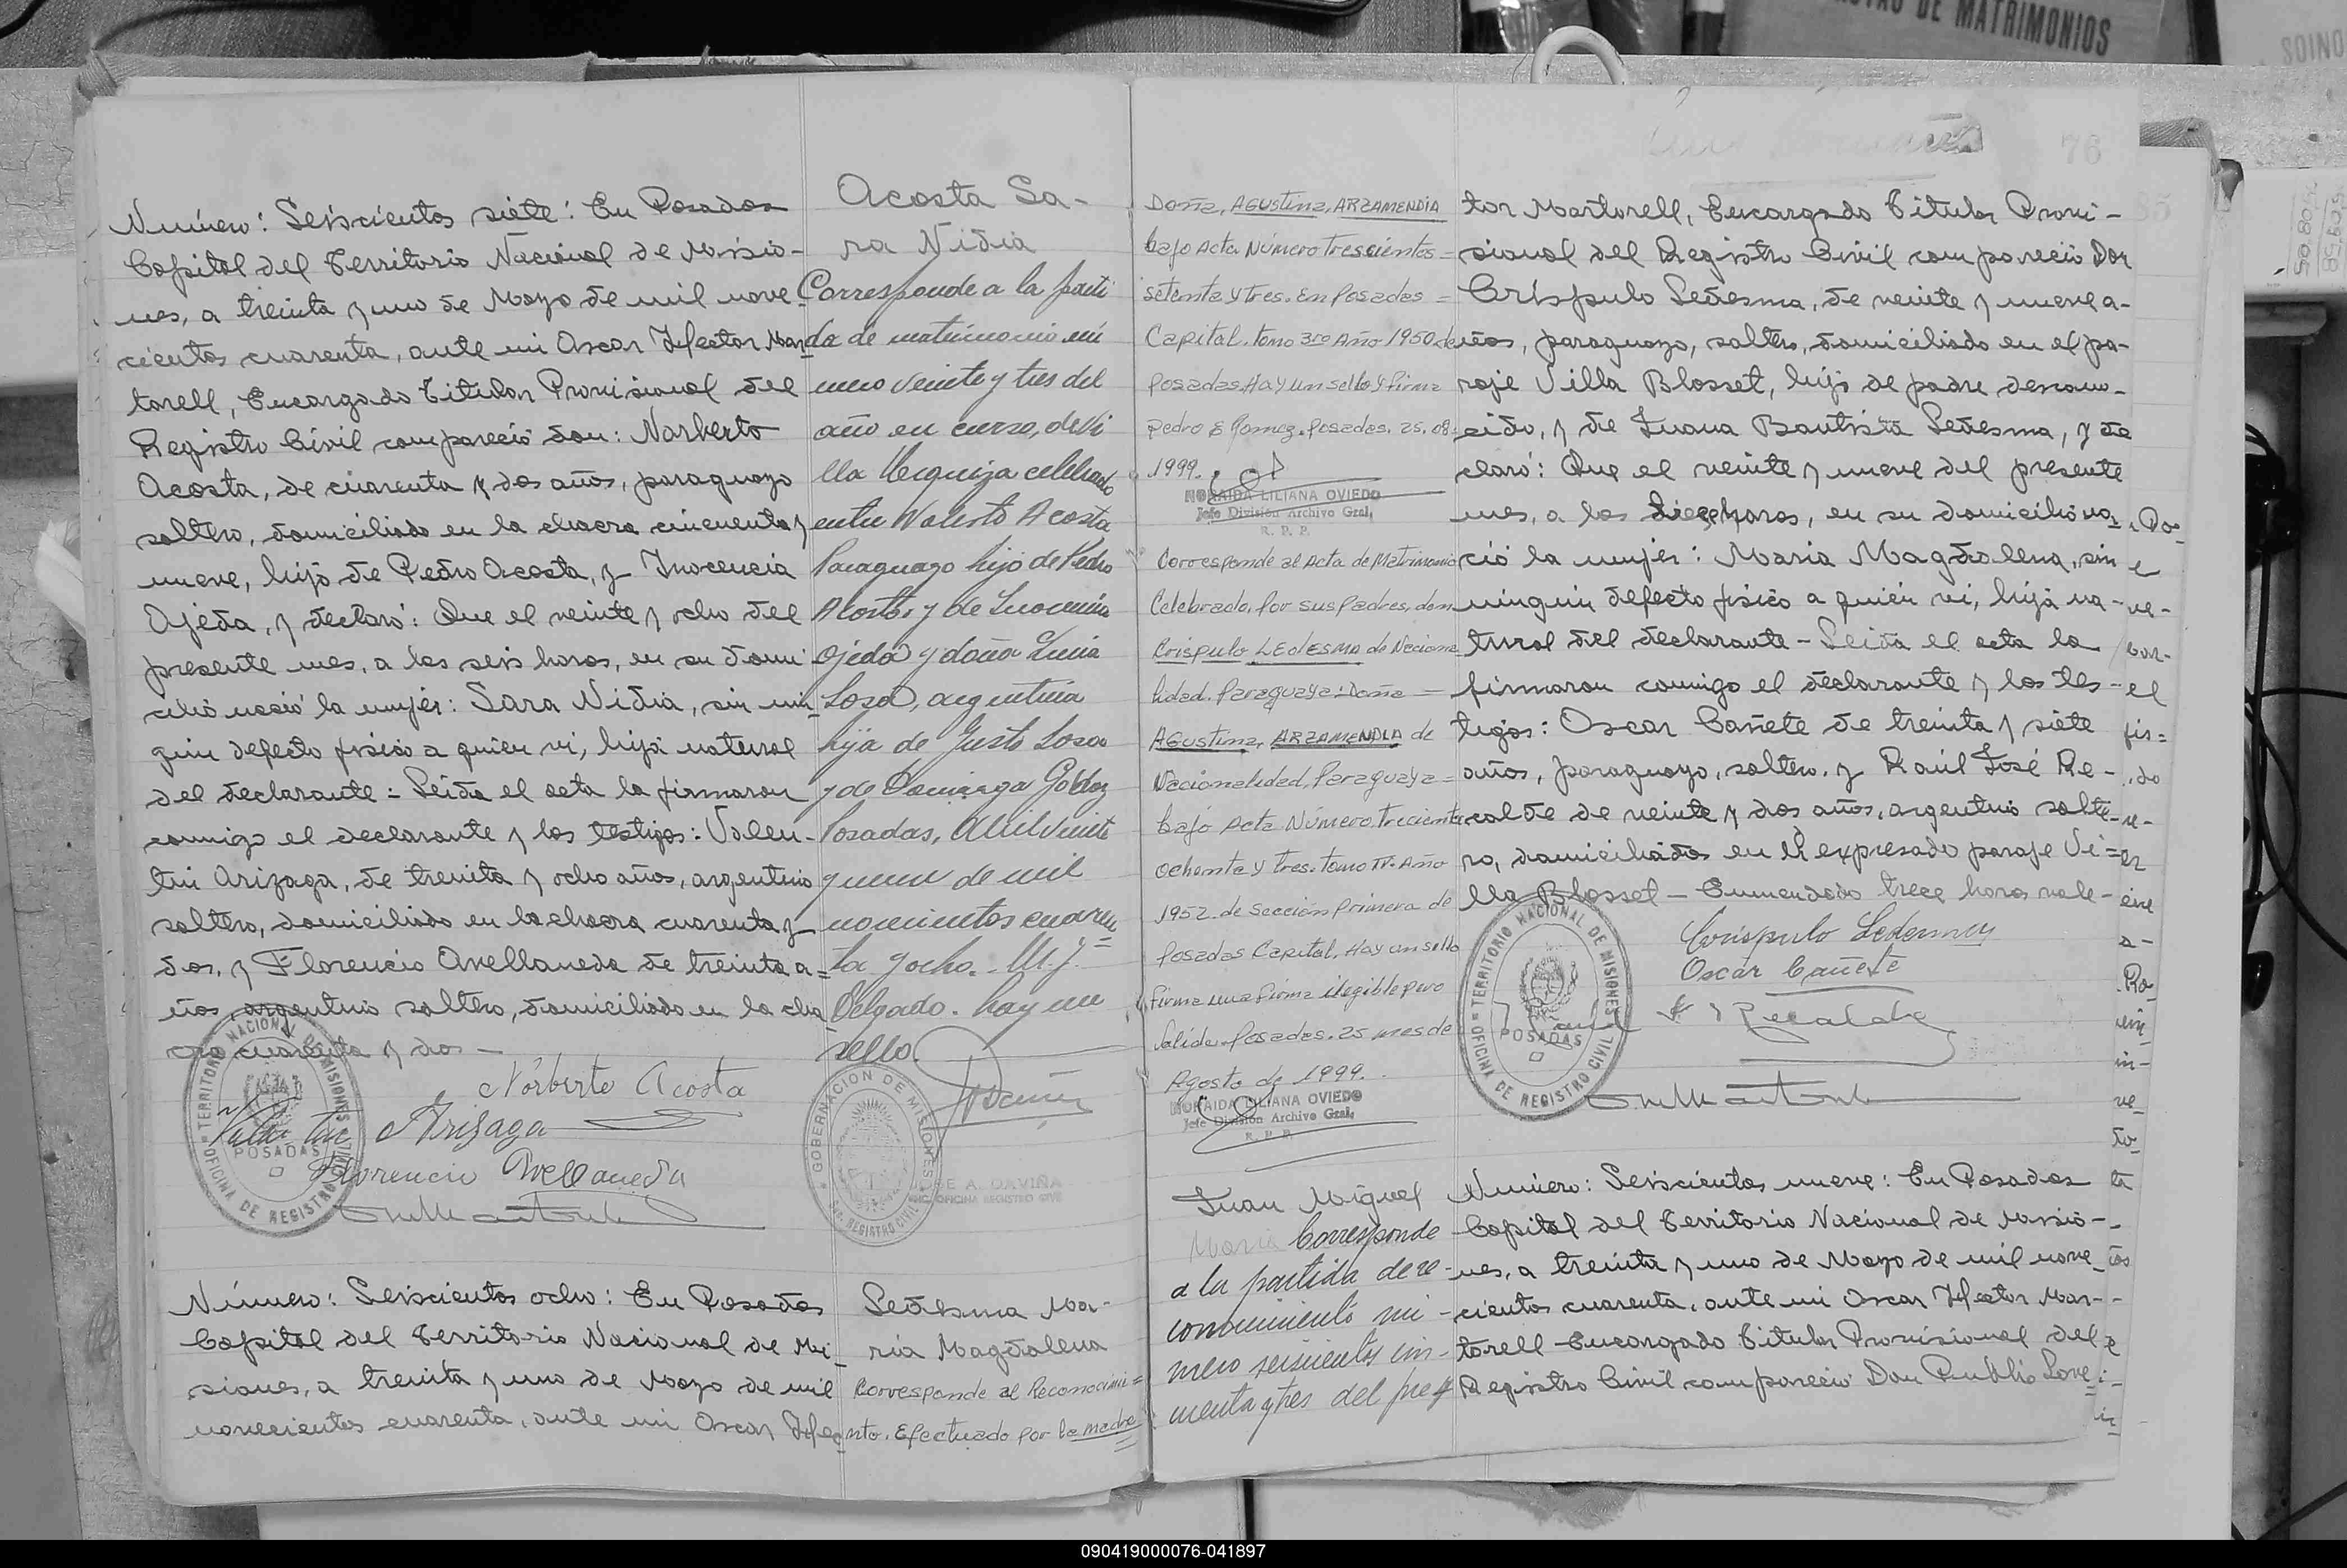 STAS DE MATRIMONIOS
Número: Seiscientos siete: En Posadas
Capital del Territorio Nacional de Misio-
nes, a treinta y uno de Mayo de mil nove-
cientos cuarenta, ante mi Oscar Hector Mar-
torell, Encargado Titular Provisional del
Registro Civil compareció don: Norberto
Acosta, de cuarenta y dos años, paraguayo
soltero, domiciliado en la chacra cincuenta y
nueve, hijo de Pedro Acosta, y Inocencia
Ojeda, y declaró: Que el veinte y ocho del
presente mes, a las seis horas, en su domi-
cilio nació la mujer: Sara Nidia, sin nin-
guin defecto fisico a quien vi, hija natural
del declarante = Leida el acta la firmaron
conmigo el declarante y los testigos: Valen-
tin Arizaga, de treinta y ocho años, argentino
soltero, domiciliado en la chacra cuarenta y
dos, y Florencio Avellaneda de treinta a=
ños, argentino soltero, domiciliado en la cha
cra cuarenta y dos —
Norberto Acosta
Valentin Arizaga
Florencio Avellaneda
TERRITORIO NACIONAL DE MISIONES
OFICINA DE REGISTRO CIVIL
POSADAS
Número: Seiscientos ocho: En Posadas
Capital del Territorio Nacional de Mi-
siones, a treinta y uno de Mayo de mil
novecientos cuarenta, ante mi Oscar Hec-
Acosta Sa-
ra Nidia
Corresponde a la parti
da de matrimonio nú
mero veinte y tres del
año en curso, de Vi
lla Urquiza celebrado
entre Norberto Acosta
Paraguayo hijo de Pedro
Acosta y de Inocencia
Ojeda y doña Lucia
Sosa, argentina
hija de Justo Sosa
y de Dominga Godoy
Posadas, Abril veinte
y nueve de mil
novecientos cuaren=
ta y ocho. M. J.
Delgado. hay un
sello.
GOBERNACION DE MISIONES
REGISTRO CIVIL
JOSE A. DAVIÑA
ENC. OFICINA REGISTRO CIVIL
Ledesma Ma-
ria Magdalena
Corresponde al Reconocimie=
nto. Efectuado por la madre
Doña, AGUSTINA, ARZAMENDIA
bajo Acta Número Trescientos =
setenta y tres. En Posadas =
Capital. tomo 3ro Año 1950 de
Posadas. Hay un sello y firma
Pedro E Gomez. Posadas. 25. 08.
1999.
NORAIDA LILIANA OVIEDO
Jefe División Archivo Gral.
R. P. P.
Corresponde al Acta de Matrimonio
Celebrado, Por sus Padres, don
Crispulo LEDESMA de Naciona
lidad. Paraguaya: Doña =
AGUSTINA, ARZAMENDIA de
Nacionalidad, Paraguaya =
bajo Acta Número, Treciento
ochenta y tres. tomo IV. Año
1952. de Sección Primera de
Posadas Capital. Hay un sello
firma una firma ilegible pero
Valida. Posadas. 25 mes de
Agosto de 1999.
NORAIDA LILIANA OVIEDO
Jefe División Archivo Gral.
R. P. P.
Juan Miguel
Maria Corresponde
a la partida de re-
conocimiento nú-
mero seiscientos cin-
cuenta y tres del pre
76
tor Martorell, Encargado Titular Provi-
sional del Registro Civil compareció Don
Crispulo Ledesma, de veinte y nueve a-
ños, paraguayo, soltero, domiciliado en el pa-
raje Villa Blosset, hijo de padre descono-
cido, y de Juana Bautista Ledesma, y de
claró: Que el veinte y nueve del presente
mes, a las horas, en su domicilio na-
ció la mujer: Maria Magdalena, sin
ninguin defecto fisico a quien vi, hija na-
tural del declarante - Leida el acta la
firmaron conmigo el declarante y los tes-
tigos: Oscar Cañete de treinta y siete
años, paraguayo, soltero, y Raúl José Re-
calde de veinte y dos años, argentino solte-
ro, domiciliados en el expresado paraje Vi=
lla Blosset — Enmendado trece horas vale-
Crispulo Ledesma
Oscar Cañete
Raul J Recalde
TERRITORIO NACIONAL DE MISIONES
OFICINA DE REGISTRO CIVIL
POSADAS
Número: Seiscientos nueve: En Posadas
Capital del Territorio Nacional de Misio-
nes, a treinta y uno de Mayo de mil nove
cientos cuarenta, ante mi Oscar Hector Mar-
torell Encargado Titular Provisional del
Registro Civil compareció Don Publio Love
090419000076-041897